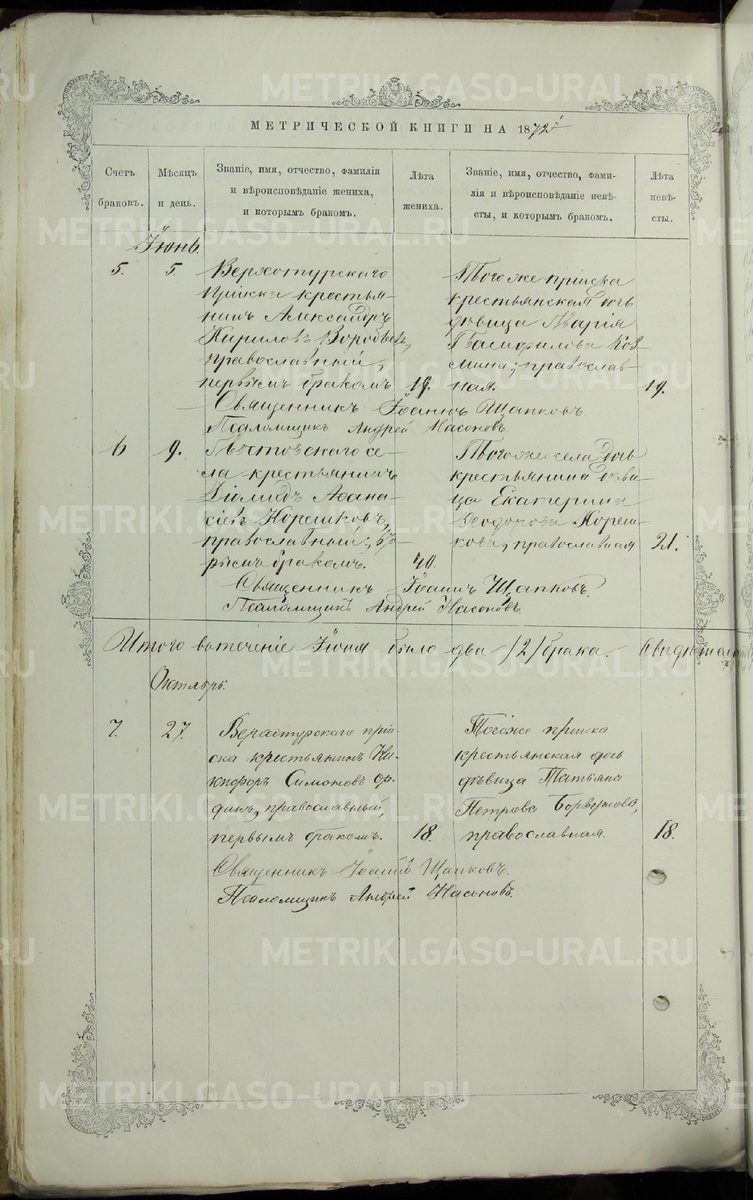 МЕТРИЧЕСКОЙ КНИГИ НА 1872
Счетъ браковъ.
Мѣсяцъ и день.
Званіе, имя, отчество, фамилія
и вѣроисповѣданіе жениха,
и которымъ бракомъ.
Лѣта жениха.
Званіе, имя, отчество, фами-
лія и вѣроисповѣданіе невѣ-
сты, и которымъ бракомъ.
Лѣта невѣ-
сты.
Іюнь.
5. 5.
Верхотурскаго
пріиска крестья-
нинъ Александръ
Кириловъ Воробьевъ,
православный,
первымъ бракомъ 19.
Тогоже пріиска
крестьянская дочь
дѣвица Марія
Коз-
мина, православ-
ная. 19.
Священникъ Іоаннъ Щапковъ
Псаломщикъ Андрей Насоновъ.
6 9.
се-
ла крестьянинъ
Діомидъ Афана-
сіевъ Корешковъ,
православный,
бракомъ. 40.
Тогоже села дочь
крестьянина дѣви-
ца Екатерина
Кореш-
кова, православная 21.
Священникъ Іоаннъ Щапковъ.
Псаломщикъ Андрей Насоновъ
Итого въ теченіе Іюня было два /2/ брака.
Октябрь.
7. 27.
Верхотурскаго прі-
иска крестьянинъ Ни-
кифоръ Симоновъ
православный,
первымъ бракомъ. 18.
Тогоже пріиска
крестьянская дочь
дѣвица Татьяна
Петрова
православная. 18.
Священникъ Іоаннъ Щапковъ.
Псаломщикъ Андрей Насоновъ.
METRIKI.GASO-URAL.RU